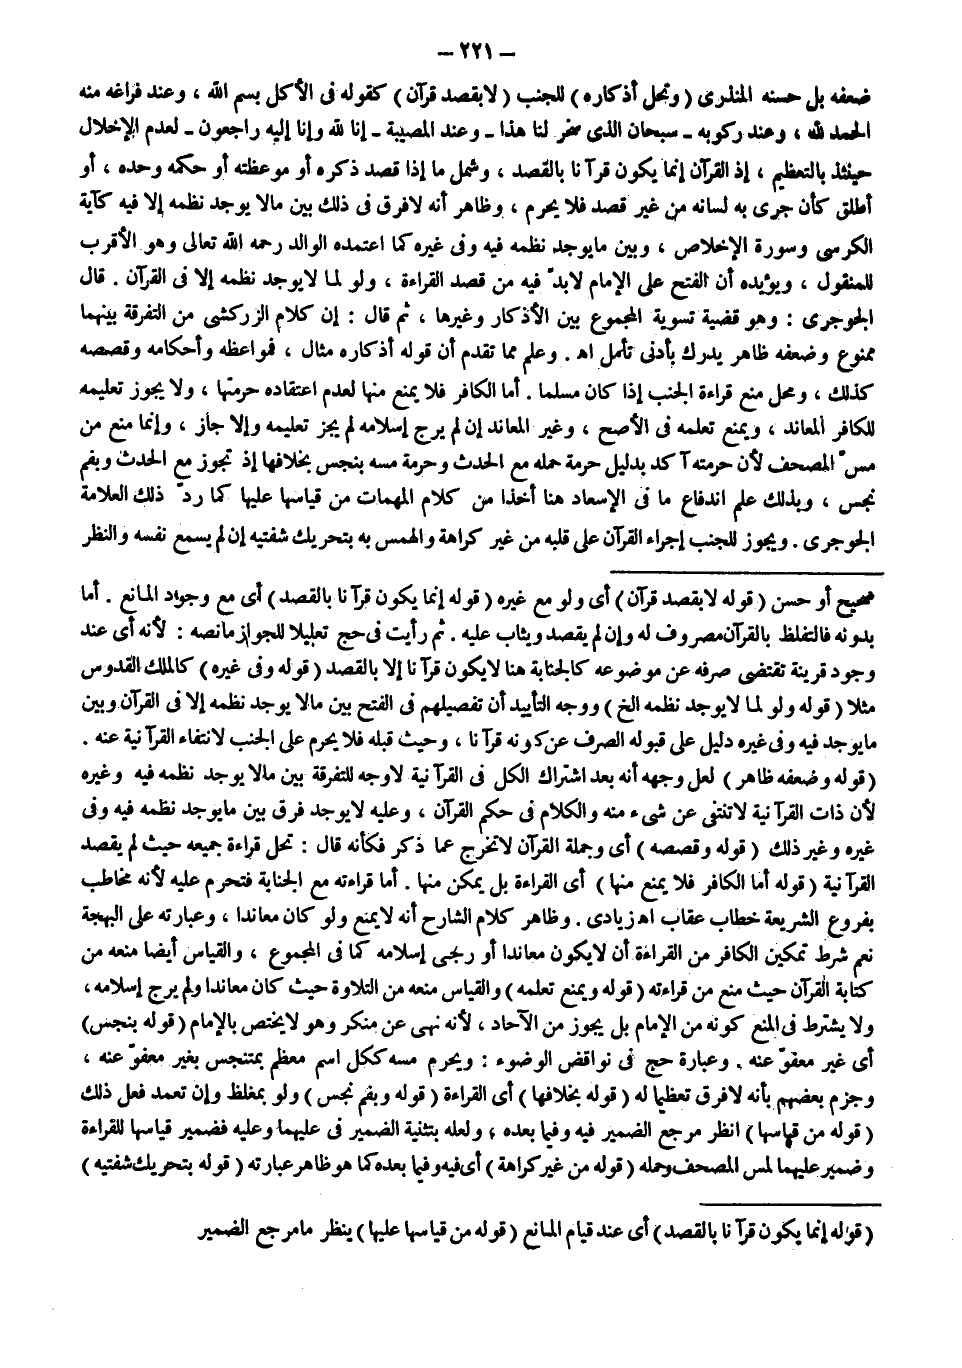 – ٢٢١ –
ضعفه بل حسنه المنذرى ( وتحل أذكاره ) للجنب ( لابقصد قرآن ) كقوله فى الأكل بسم الله ، وعند فراغه منه
الحمد لله ، وعند ركوبه ـ سبحان الذى سخر لنا هذا ـ وعند المصيبة ـ إنا لله وإنا إليه راجعون ـ لعدم الإخلال
حينئذ بالتعظيم ، إذ القرآن إنما يكون قرآنا بالقصد ، وشمل ما إذا قصد ذكره أو موعظته أو حكمه وحده ، أو
أطلق كأن جرى به لسانه من غير قصد فلا يحرم ، وظاهر أنه لافرق فى ذلك بين مالا يوجد نظمه إلا فيه كآية
الكرسى وسورة الإخلاص ، وبين مايوجد نظمه فيه وفى غيره كما اعتمده الوالد رحمه الله تعالى وهو الأقرب
للمنقول ، ويؤيده أن الفتح على الإمام لابدّ فيه من قصد القراءة ، ولو لما لايوجد نظمه إلا فى القرآن . قال
الجوجرى : وهو قضية تسوية المجموع بين الأذكار وغيرها ، ثم قال : إن كلام الزركشى من التفرقة بينهما
ممنوع وضعفه ظاهر يدرك بأدنى تأمل اه . وعلم مما تقدم أن قوله أذكاره مثال ، فمواعظه وأحكامه وقصصه
كذلك ، ومحل منع قراءة الجنب إذا كان مسلما . أما الكافر فلا يمنع منها لعدم اعتقاده حرمتها ، ولا يجوز تعليمه
للكافر المعاند ، ويمنع تعلمه فى الأصح ، وغير المعاند إن لم يرج إسلامه لم يجز تعليمه وإلا جاز ، وإنما منع من
مسّ المصحف لأن حرمته آكد بدليل حرمة حمله مع الحدث وحرمة مسه بنجس بخلافها إذ تجوز مع الحدث وبفم
نجس ، وبذلك علم اندفاع ما فى الإسعاد هنا أخذا من كلام المهمات من قياسها عليها كما ردّ ذلك العلامة
الجوجرى . ويجوز للجنب إجراء القرآن على قلبه من غير كراهة والهمس به بتحريك شفتيه إن لم يسمع نفسه والنظر
صحيح أو حسن ( قوله لابقصد قرآن ) أى ولو مع غيره ( قوله إنما يكون قرآنا بالقصد ) أى مع وجود المانع . أما
بدونه فالتلفظ بالقرآن مصروف له وإن لم يقصد ويثاب عليه . ثم رأيت فى حج تعليلا للجواز مانصه : لأنه أى عند
وجود قرينة تقتضى صرفه عن موضوعه كالجنابة هنا لايكون قرآنا إلا بالقصد ( قوله وفى غيره ) كالملك القدوس
مثلا ( قوله ولو لما لايوجد نظمه الخ ) ووجه التأييد أن تفصيلهم فى الفتح بين مالا يوجد نظمه إلا فى القرآن وبين
مايوجد فيه وفى غيره دليل على قبوله الصرف عن كونه قرآنا ، وحيث قبله فلا يحرم على الجنب لانتفاء القرآنية عنه .
( قوله وضعفه ظاهر ) لعل وجهه أنه بعد اشتراك الكل فى القرآنية لاوجه للتفرقة بين مالا يوجد نظمه فيه وغيره
لأن ذات القرآنية لاتنتفى عن شىء منه والكلام فى حكم القرآن ، وعليه لايوجد فرق بين مايوجد نظمه فيه وفى
غيره وغير ذلك ( قوله وقصصه ) أى وجملة القرآن لاتخرج عما ذكر فكأنه قال : تحل قراءة جميعه حيث لم يقصد
القرآنية ( قوله أما الكافر فلا يمنع منها ) أى القراءة بل يمكن منها . أما قراءته مع الجنابة فتحرم عليه لأنه مخاطب
بفروع الشريعة خطاب عقاب اه زيادى . وظاهر كلام الشارح أنه لايمنع ولو كان معاندا ، وعبارته على البهجة
نعم شرط تمكين الكافر من القراءة أن لايكون معاندا أو رجى إسلامه كما فى المجموع ، والقياس أيضا منعه من
كتابة القرآن حيث منع من قراءته ( قوله ويمنع تعلمه ) والقياس منعه من التلاوة حيث كان معاندا ولم يرج إسلامه ،
ولا يشترط فى المنع كونه من الإمام بل يجوز من الآحاد ، لأنه نهى عن منكر وهو لايختص بالإمام ( قوله بنجس )
أى غير معفوّ عنه . وعبارة حج فى نواقض الوضوء : ويحرم مسه ككل اسم معظم بمتنجس بغير معفوّ عنه ،
وجزم بعضهم بأنه لافرق تعظيما له ( قوله بخلافها ) أى القراءة ( قوله وبفم نجس ) ولو بمغلظ وإن تعمد فعل ذلك
( قوله من قياسها ) انظر مرجع الضمير فيه وفيما بعده ، ولعله بتثنية الضمير فى عليهما وعليه فضمير قياسها للقراءة
وضمير عليهما لمس المصحف وحمله ( قوله من غير كراهة ) أى فيه وفيما بعده كما هو ظاهر عبارته ( قوله بتحريك شفتيه )
( قوله إنما يكون قرآنا بالقصد ) أى عند قيام المانع ( قوله من قياسها عليها ) ينظر مامرجع الضمير